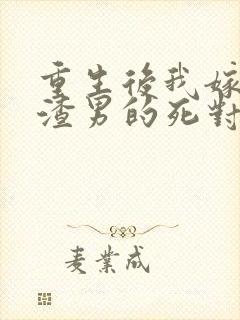 重生後我嫁
渣男的死對
麦業成